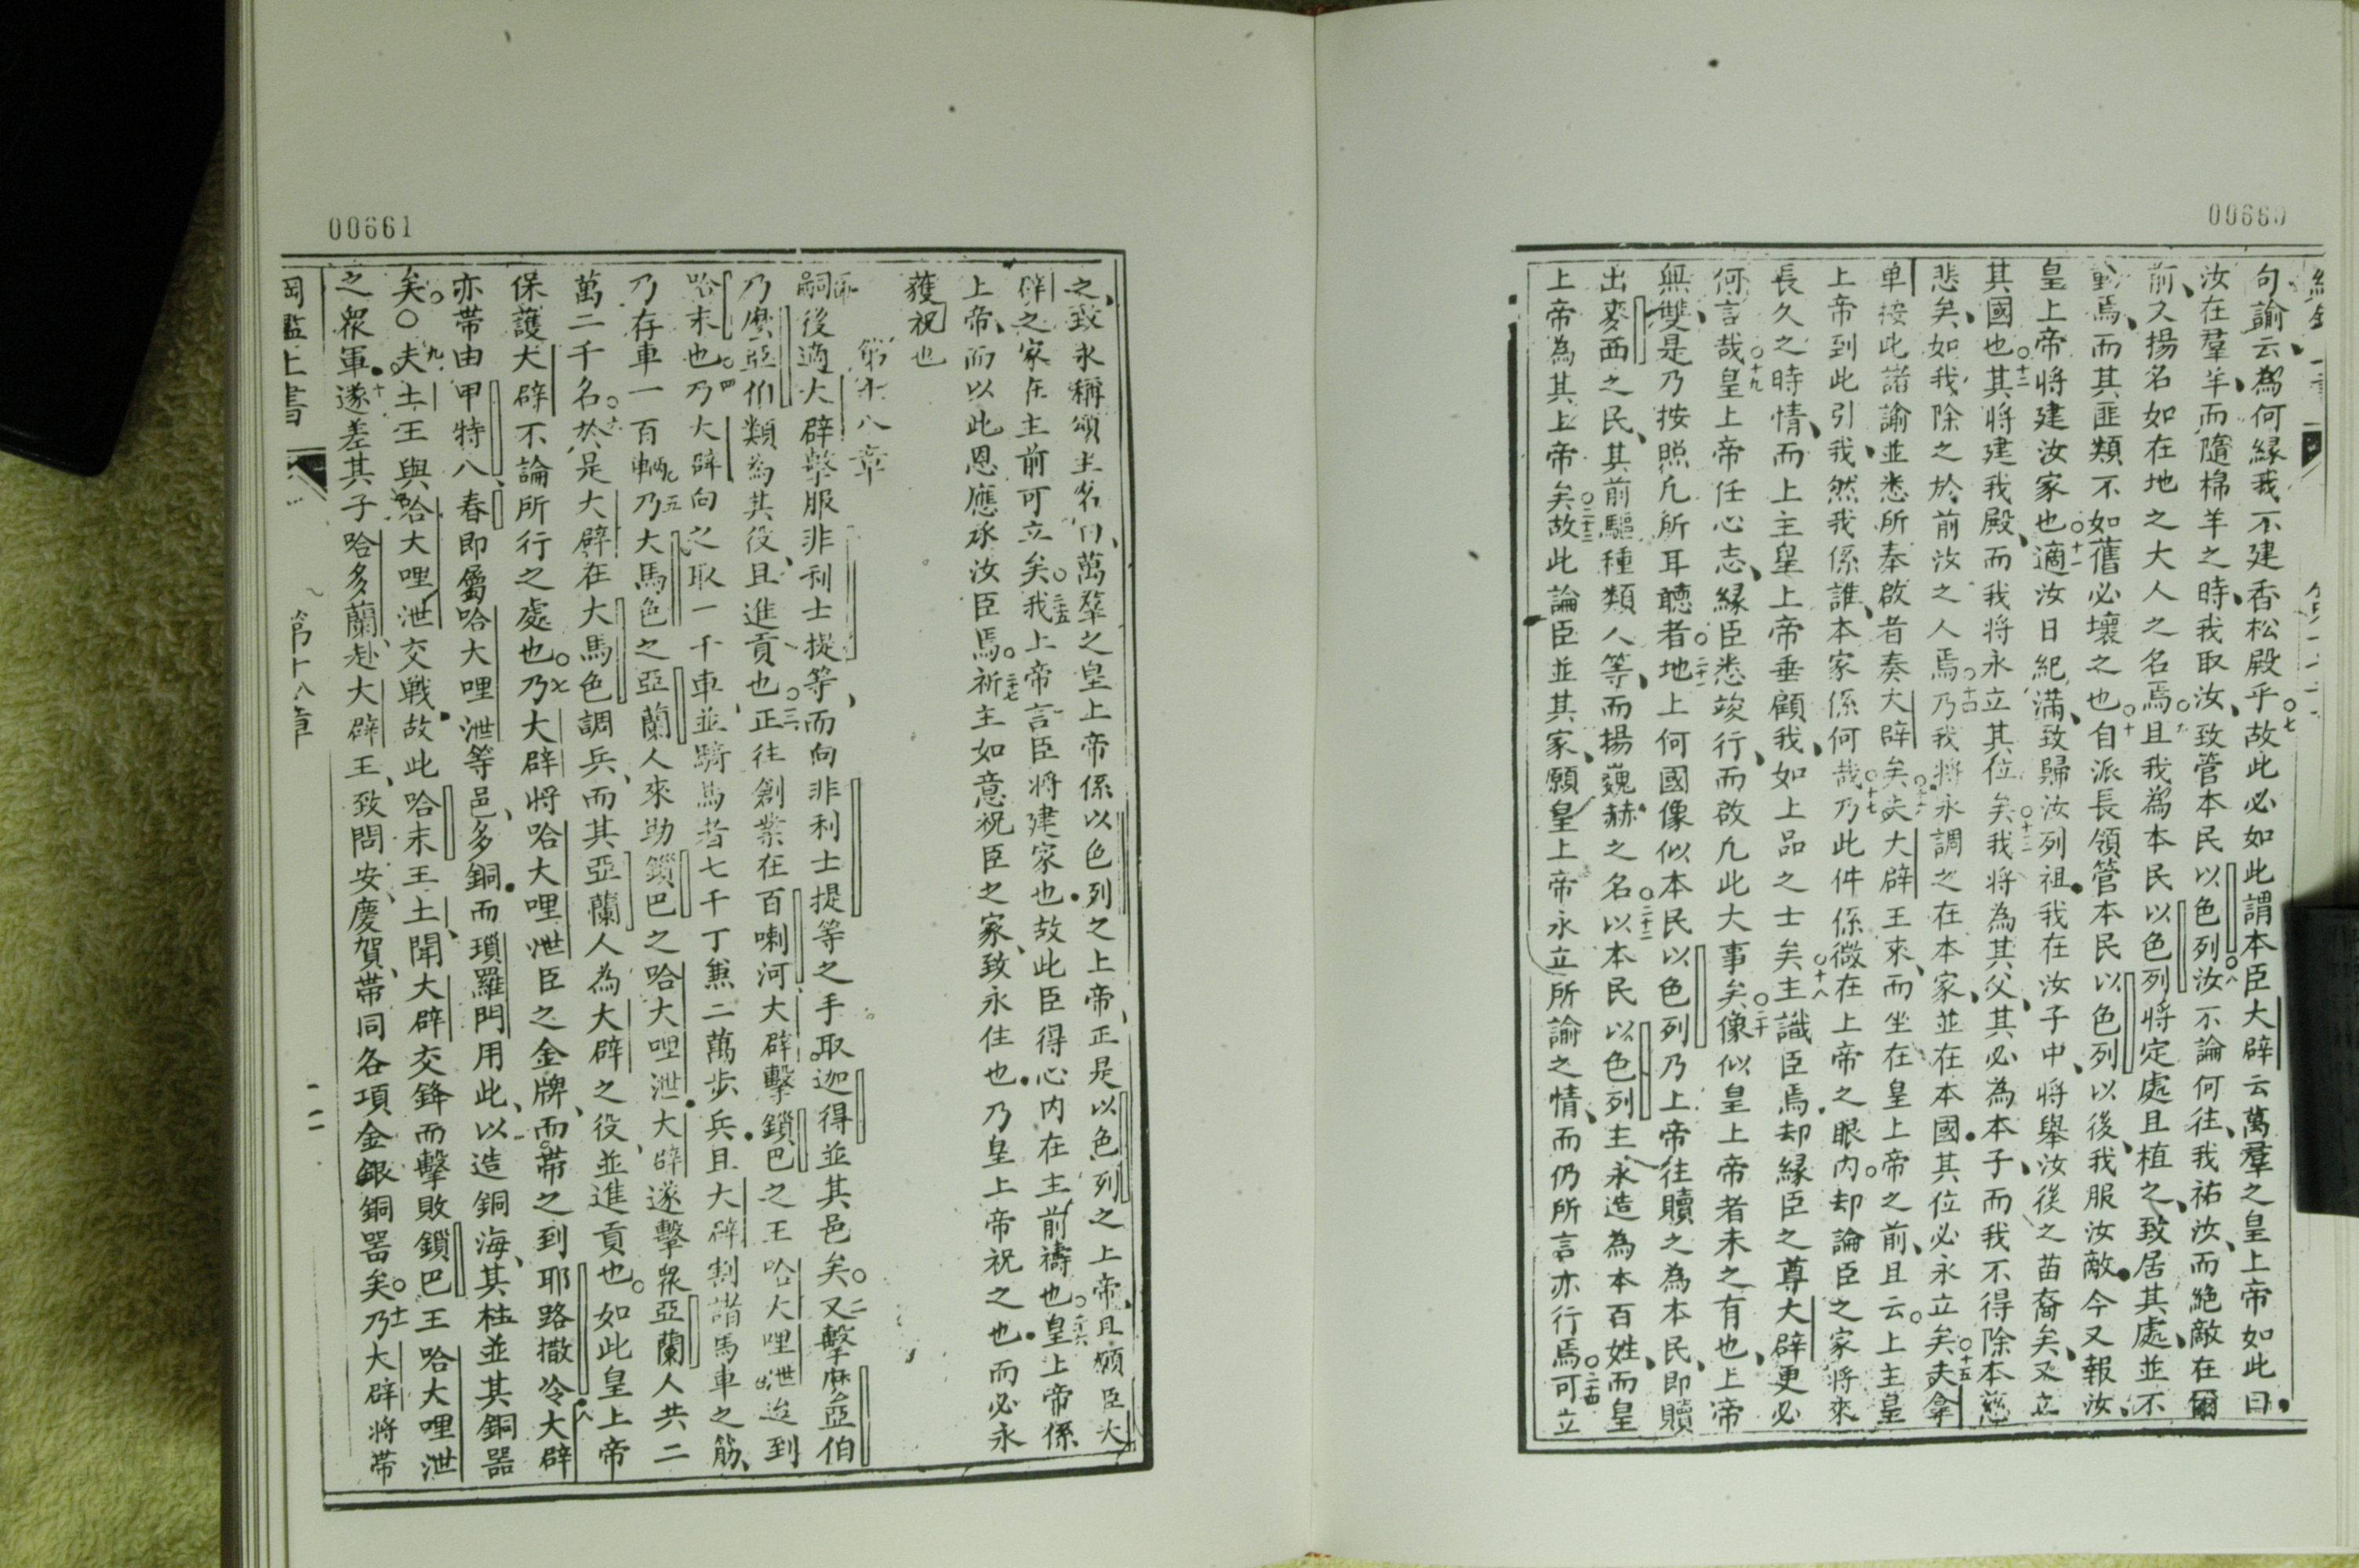 00680
句諭云為何緣我不建香松殿乎○七故此必如此謂本臣大辟云萬羣之皇上帝如此曰
汝在羣羊而隨棉羊之時我取汝致管本民以色列○八汝不論何往我祐汝而絕敵在爾
前又揚名如在地之大人之名焉○九且我為本民以色列將定處且植之致居其處並不
動焉而其匪類不如舊必壞之也○十自派長領管本民以色列以後我服汝敵今又報汝
皇上帝將建汝家也○十一適汝日紀滿致歸汝列祖我在汝子中將舉汝後之苗裔矣又立
其國也○十二其將建我殿而我將永立其位矣○十三我將為其父其必為本子而我不得除本慈
悲矣如我除之於前汝之人焉○十四乃我將永調之在本家並在本國其位必永立矣○十五夫拿
單按此諸諭並悉所奉啟者奏大辟矣○十六夫大辟王來而坐在皇上帝之前且云上主皇
上帝到此引我然我係誰本家係何哉○十七乃此件係微在上帝之眼內却論臣之家將來
長久之時情而上主皇上帝垂顧我如上品之士矣○十八主識臣焉却緣臣之尊大辟更必
何言哉○十九皇上帝任心志緣臣悉竣行而啟凡此大事矣○二十像似皇上帝者未之有也上帝
無雙是乃按照凡所耳聽者○二十一地上何國像似本民以色列乃上帝往贖之為本民即贖
出麥西之民其前驅種類人等而揚巍赫之名○二十二以本民以色列主永造為本百姓而皇
上帝為其上帝矣○二十三故此論臣並其家願皇上帝永立所諭之情而仍所言亦行焉○二十四可立
00661
之致永稱頌主名曰萬羣之皇上帝係以色列之上帝正是以色列之上帝且願臣大
辟之家在主前可立矣○二十五我上帝言臣將建家也故此臣得心內在主前禱也○二十六皇上帝係
上帝而以此恩應承汝臣焉○二十七祈主如意祝臣之家致永住也乃皇上帝祝之也而必永
獲祝也
第十八章
嗣後適大辟擊服非利士提等而向非利士提等之手取迦得並其邑矣○二又擊麼亞伯
乃麼亞伯類為其役且進貢也○三正往創業在百喇河大辟擊鎖巴之王哈大哩泄迨到
哈末也○四乃大辟向之取一千車並騎馬者七千丁兼二萬步兵且大辟割諸馬車之筋
乃存車一百輛○五乃大馬色之亞蘭人來助鎖巴之哈大哩泄大辟遂擊眾亞蘭人共二
萬二千名○六於是大辟在大馬色調兵而其亞蘭人為大辟之役並進貢也如此皇上帝
保護大辟不論所行之處也○七乃大辟將哈大哩泄臣之金牌而帶之到耶路撒冷○八大辟
亦帶由甲特八春即屬哈大哩泄等邑多銅而瑣羅門用此以造銅海其柱並其銅器
矣○九夫土王與哈大哩泄交戰故此哈末王土聞大辟交鋒而擊敗鎖巴王哈大哩泄
之眾軍○十遂差其子哈多蘭赴大辟王致問安慶賀帶同各項金銀銅器矣○十一乃大辟將帶
第十八章